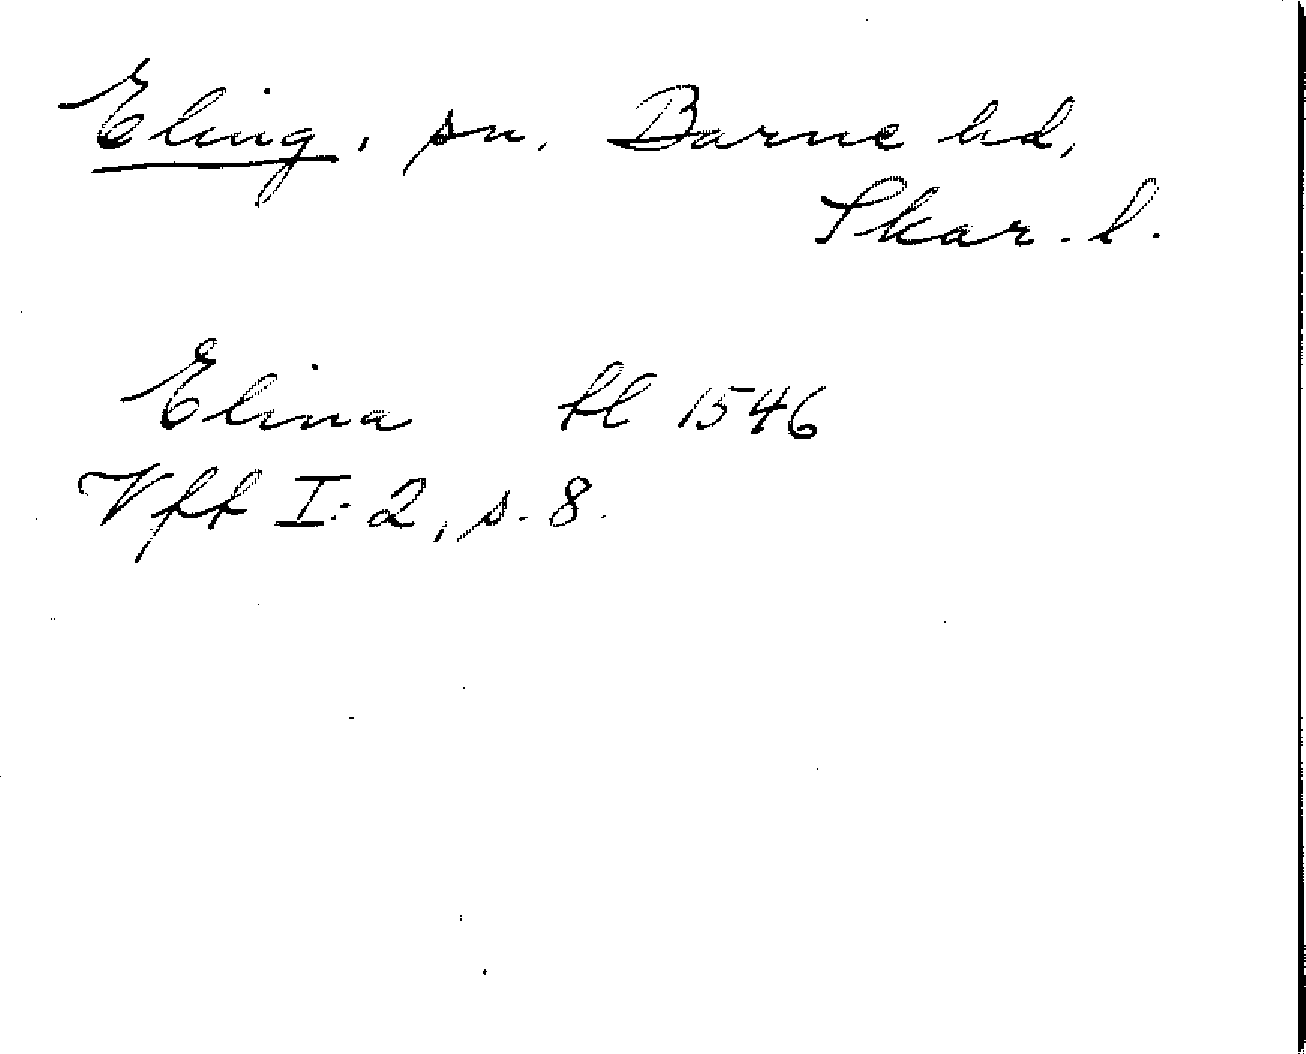 Eling, sn, Barne hd,
Skar. l.
Elina fl 1546
Vfft I:2, s. 8.